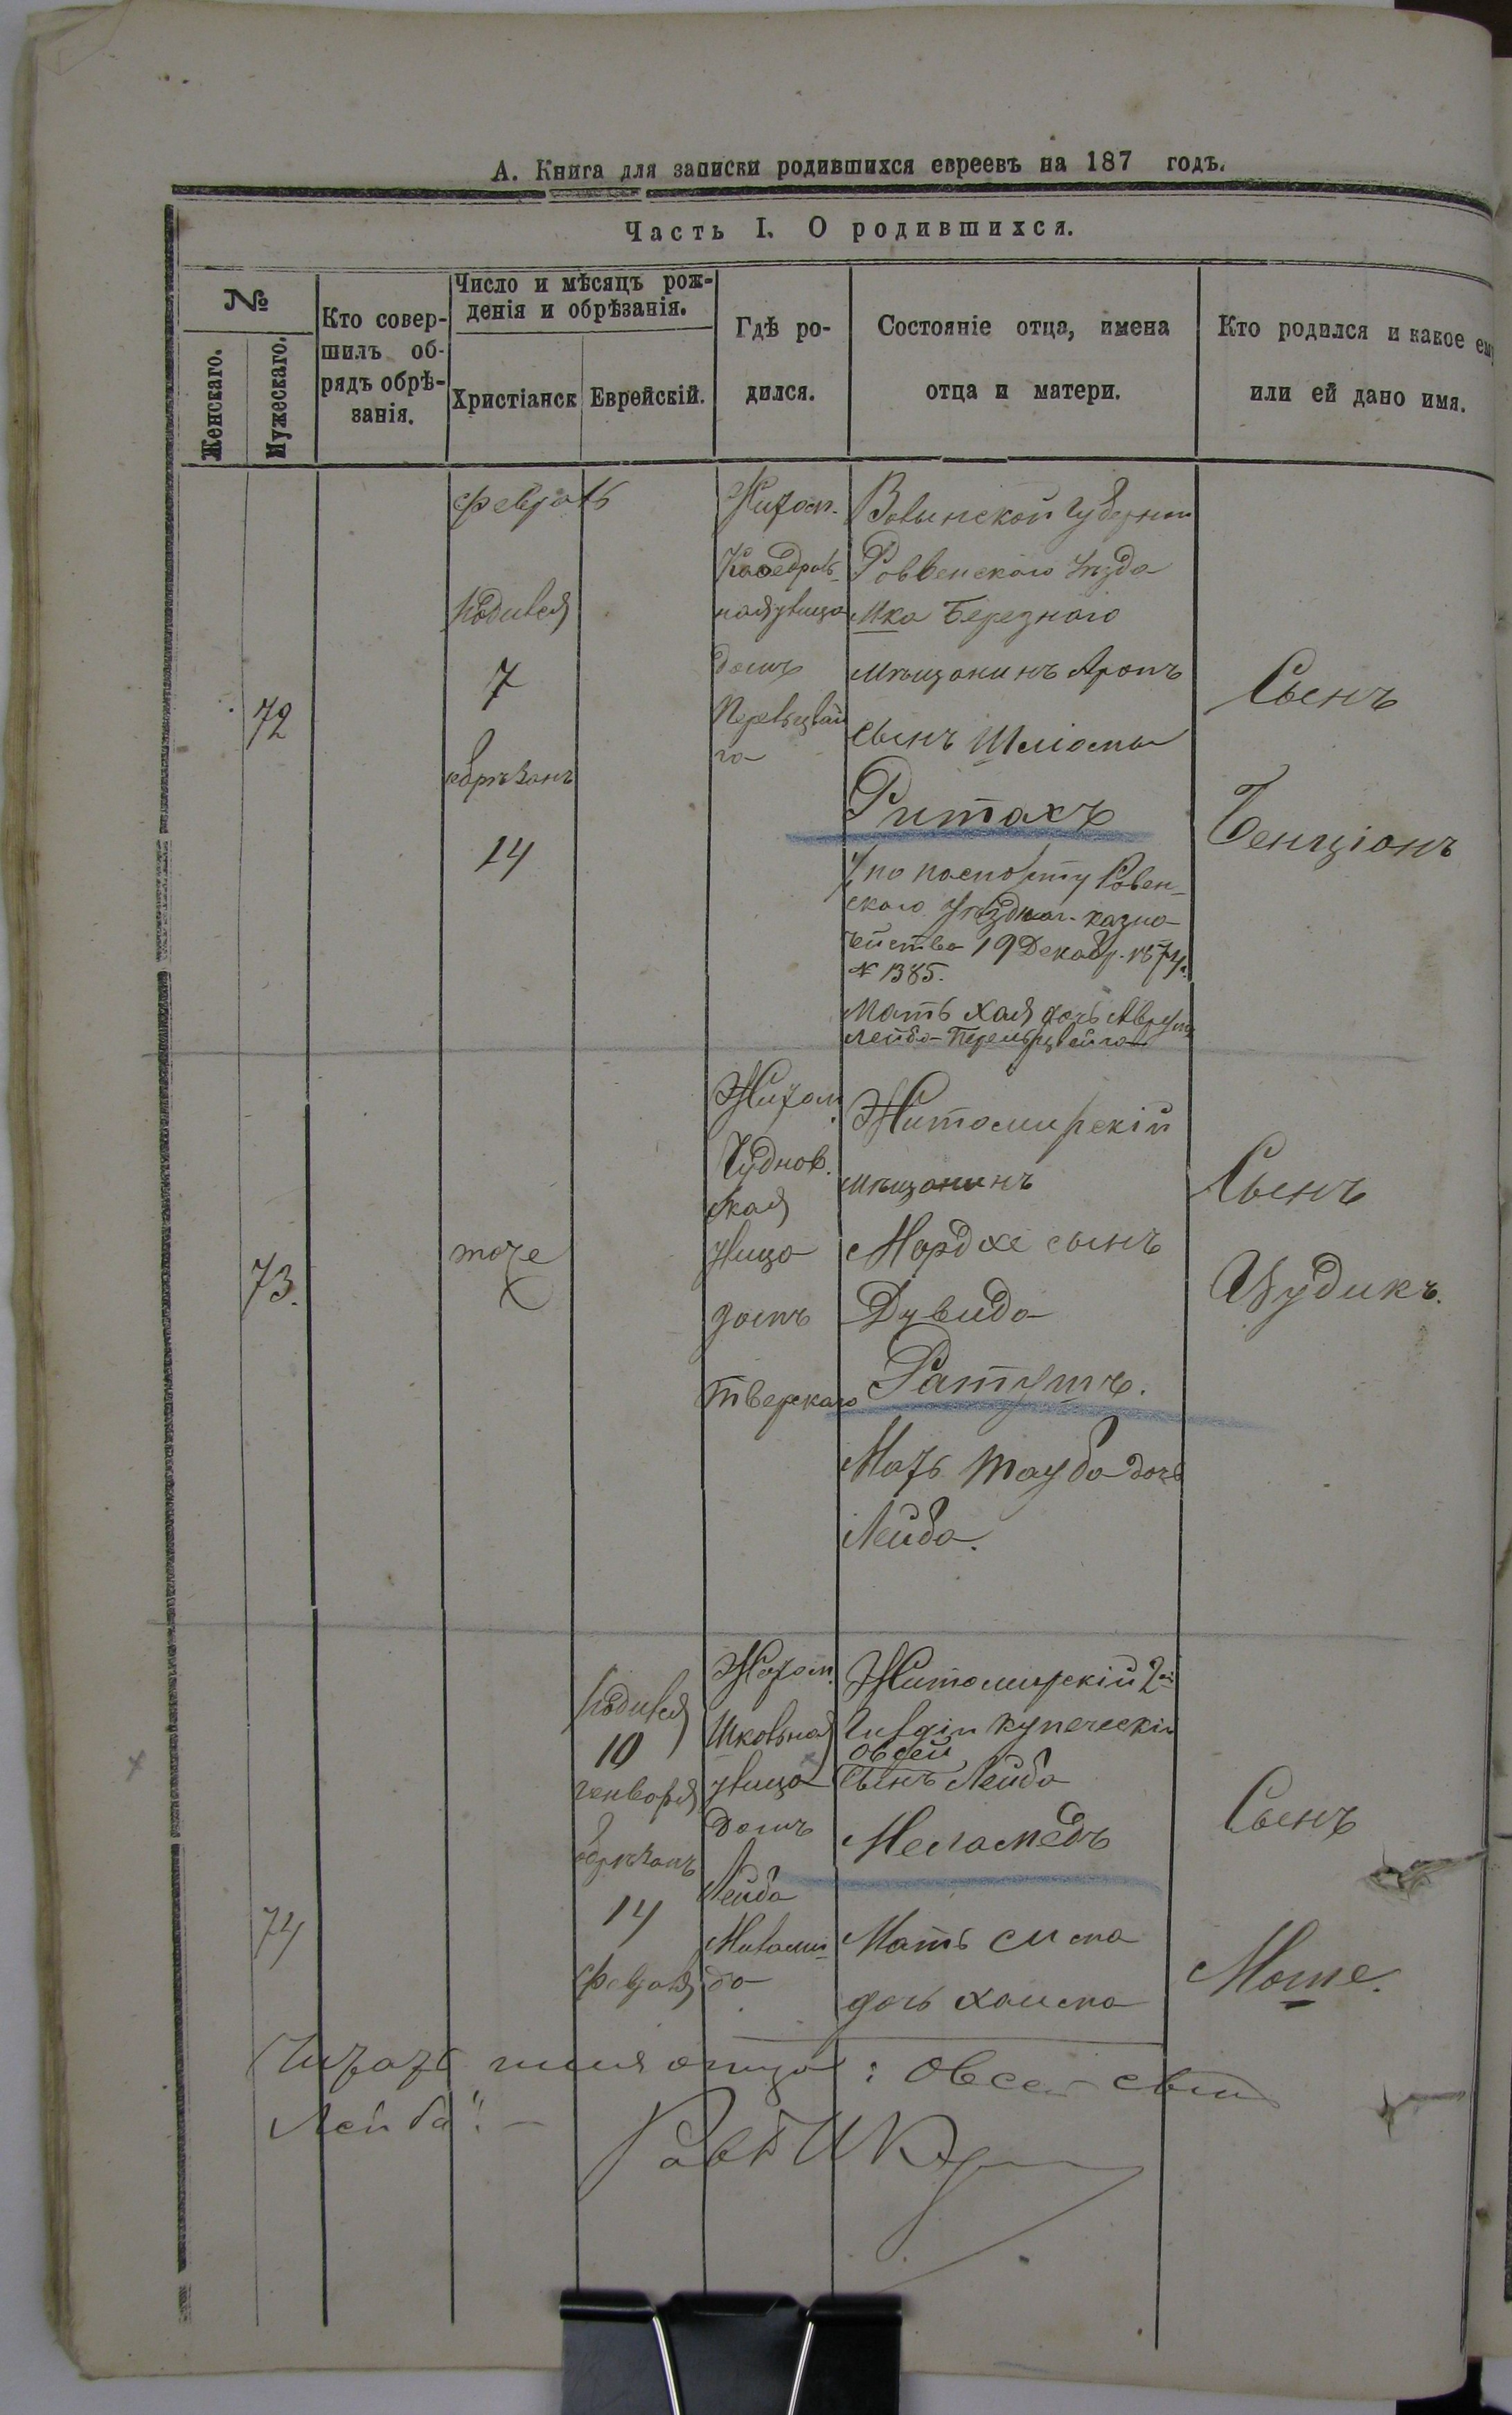 А. Книга для записки родившихся евреевъ на 187 годъ.
Часть I. О родившихся.
№
Женскаго.
Мужескаго.
Кто совер-
шилъ об-
рядъ обрѣ-
занія.
Число и мѣсяцъ рож-
денія и обрѣзанія.
Христіанск
Еврейскій.
Гдѣ ро-
дился.
Состояніе отца, имена
отца и матери.
Кто родился и какое ему
или ей дано имя.
72
февраль
Родился
7
обрѣзанъ
14
Житом.
Каѳедраль-
ная улица
домъ
Перельцвай
га
Волынской губерніи
Роввенскаго Уѣзда
Мка Березнаго
мѣщанинъ Аронъ
сынъ Шліомы
Ритахъ
по паспорту Ровен-
скаго Уѣзднаг. казна-
чейства 19 Декабр. 1874.
№ 1385.
Мать Хая дочь Аврум
Лейба Перельцвейга
Сынъ
Бенціонъ
73.
тоже
Житом.
Чуднов.
ская
улица
домъ
Тверскаго
Житомирскій
мѣщанинъ
Мордхе сынъ
Дувида
Ратушъ.
Мать Тауба дочь
Лейба.
Сынъ
Иудикъ.
74
Родился
10
генваря
обрѣзанъ
14
февраля
Житом.
Школьная
улица
домъ
Лейба
Миламе-
да
Житомирскій 2й
Гильдіи купеческій
Овсей
сынъ Лейба
Меламедъ
Мать
дочь Хаима
Сынъ
Моше.
Читать имя отца: Овсей сынъ
Лейба". —